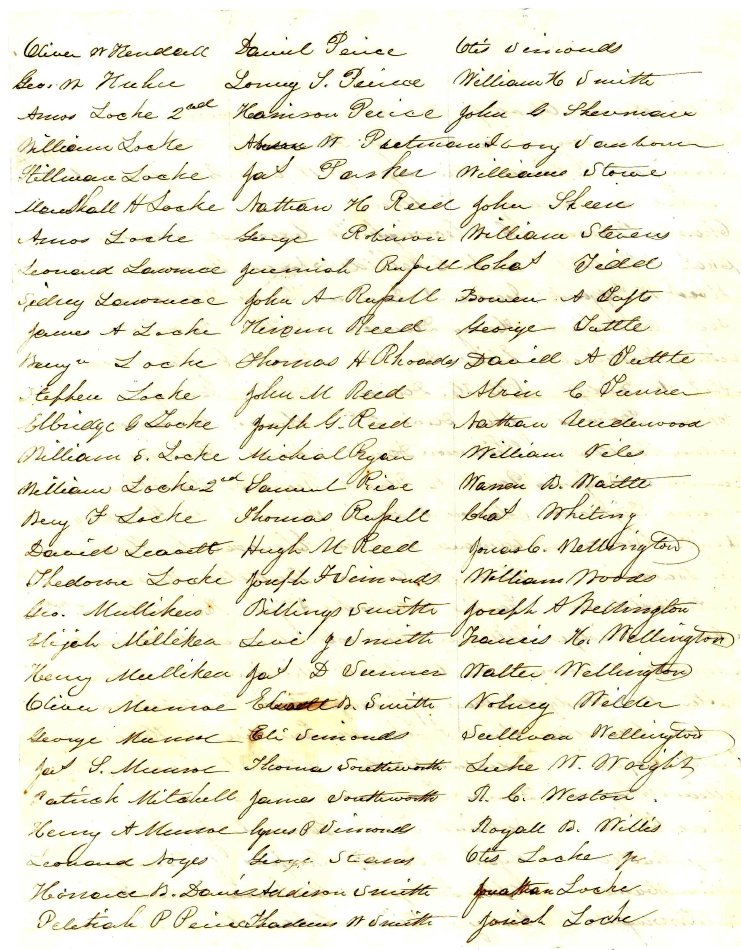 Oliver W Kendall Daniel Peirce Otis Simonds
Geo. W Loring S. Peirce William H Smith
Amos Locke 2nd Harrison Peirce John G Sherman
William Locke W Ivory Sanborn
Stillman Locke Jas Parker William Stowe
Marshall H Locke Nathan H Reed John Sheen
Amos Locke George Robinson William Stevens
Leonard Lawrence Jeremiah Russell Chas Tidd
Sidney Lawrence John A Russell Bowen A Tufts
James A Locke Hiram Reed George Tuttle
Benjn Locke Thomas H Rhoades David A Tuttle
Stephen Locke John M Reed C Turner
Elbridge G Locke Joseph G. Reed Nathan Underwood
William E. Locke Micheal Ryan William Viles
William Locke 2nd Samuel Rice Warren D. Waitt
Benj F Locke Thomas Russell Chas Whiting
David Leavett Hugh M Reed Jonas C. Wellington
Thedorre Locke Joseph F Simonds William Woods
Geo. Mulliken Billings Smith Joseph A Wellington
Elijah Milliken Levi J Smith Francis H. Wellington
Henry Mulliken Jas D Sumner Walter Wellington
Oliver Munroe B. Smith Volney Wilder
George Munroe Eli Simonds Sullivan Wellington
Jas S. Munroe Thomas Southworth Luke W. Wright
Patrick Mitchell James Southworth C. Weston
Henry A Munroe Cyrus P Simonds Royall B. Willis
Leonard Noyes George Stearns Otis Locke jr
Horrace B. Davis Addison Smith Jonathan Locke
Peletiah P Peirce Thadeus W Smith Josiah Locke